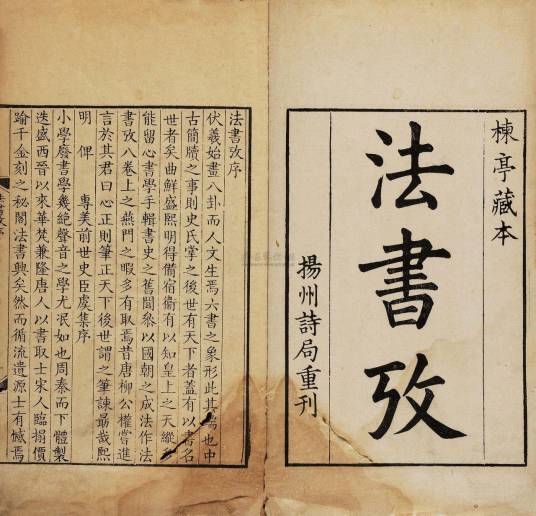 楝亭藏本
法書攷
揚州詩局重刊
法書攷序
伏羲始畫八卦而人文生焉六書之象形此其也中
古簡牘之事則史氏掌之後世有天下者蓋有以書名
世者矣曲鮮盛熙明得備宿衛有以知皇上之天縱
能留心書學手輯書史之舊聞叅以國朝之成法作法
書攷八卷上之燕閒之暇多有取焉昔唐柳公權嘗進
言於其君曰心正則筆正天下後世謂之筆諫最哉熙
明俾 專美前世史臣虞集序
小學廢書學幾絕聲音之學尤泯如也周秦而下體製
迭盛西晉以來華梵兼隆唐人以書取士宋人臨搨價
踰千金刻之秘閣法書興矣然而循流遺源士有憾焉